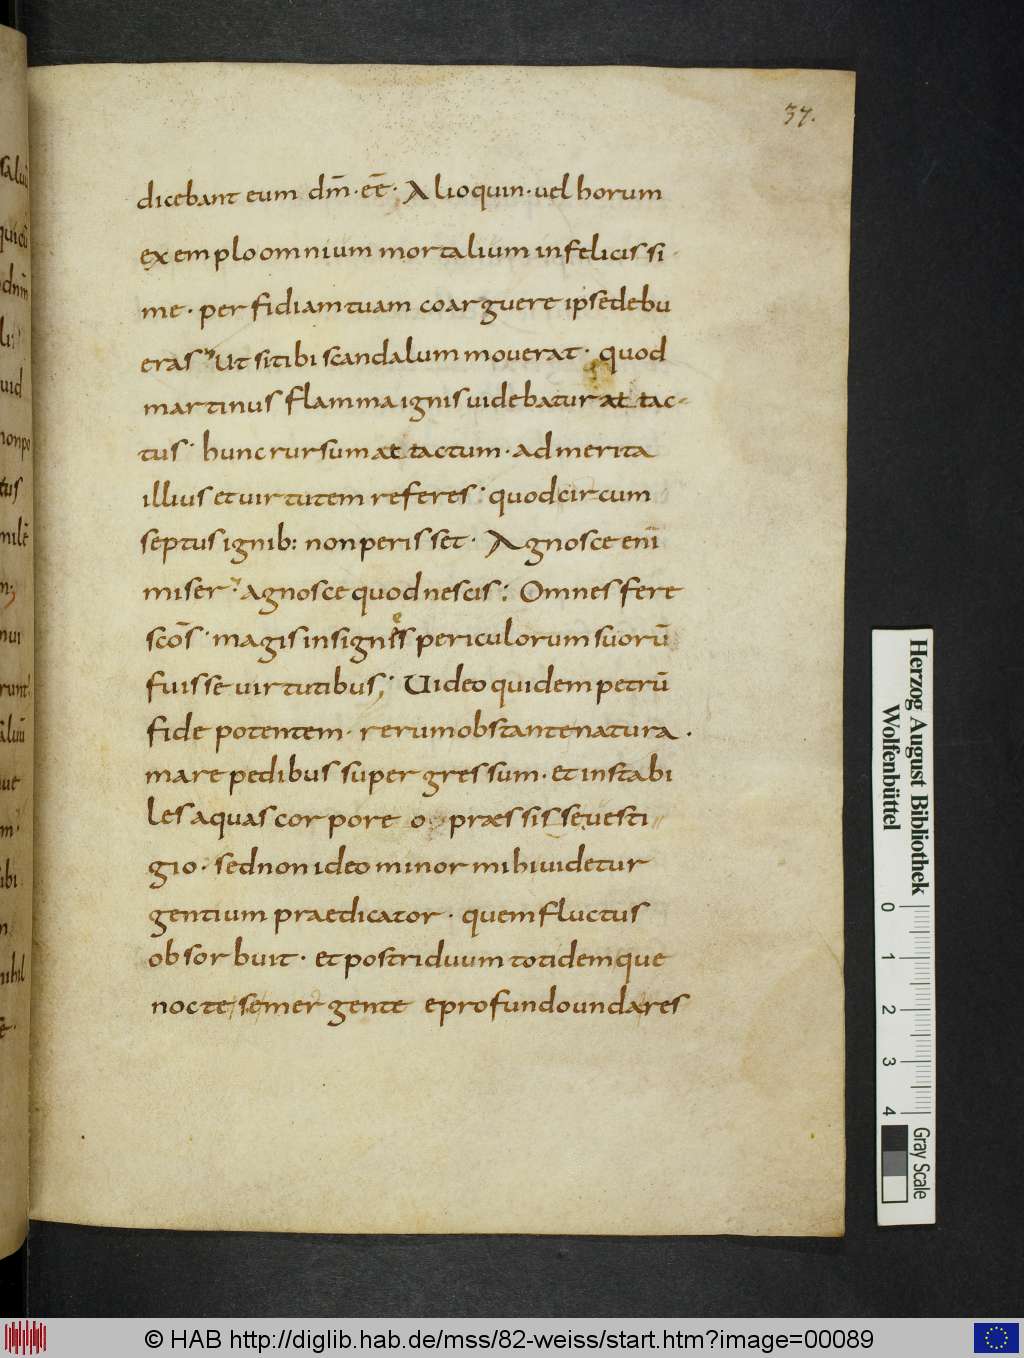 37.
dicebant eum dm̄ · eē · Alioquin · uel horum
exemplo omnium mortalium infelicissi
me · perfidiam tuam coarguere ipse debu
eras Ut si tibi scandalum mouerat · quod
martinus flamma ignis uidebatur attac-
tus · hunc rursum attactum · ad merita
illius et uirtutem referes · quod circum
septus ignib: non perisset · Agnosce enī
miser · agnosce quod nescis : Omnes fere
scōs · magis insignes periculorum suorū
fuisse uirtutibus; Uideo quidem petrū
fide potentem · rerum obstante natura ·
mare pedibus supergressum · et instabi
les aquas corpore præssisse uesti
gio · sed non ideo minor mihi uidetur
gentium praedicator · quem fluctus
obsorbuit · et post riduum totidemque
nocte semergente e profundo unda res
Herzog August Bibliothek
Wolfenbüttel
0 1 2 3 4
Gray Scale
© HAB http://diglib.hab.de/mss/82-weiss/start.htm?image=00089